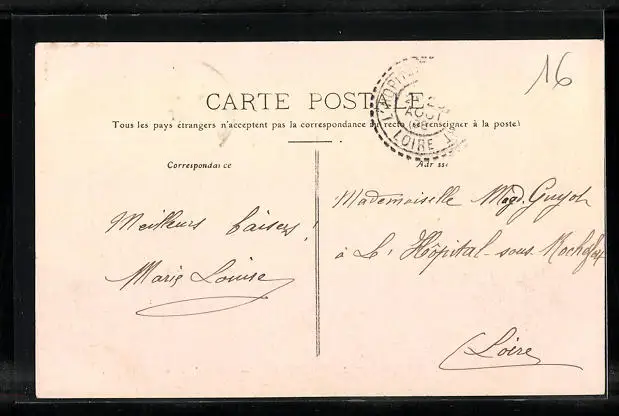 16
CARTE POSTALE
Tous les pays étrangers n'acceptent pas la correspondance au recto (se renseigner à la poste)
L'HOPITAL
AOUT
LOIRE
Correspondance
Adresse
Meilleurs baisers!
Marie Louise
Mademoiselle Magd. Guyot
à L'Hôpital-sous-Rochefort
Loire